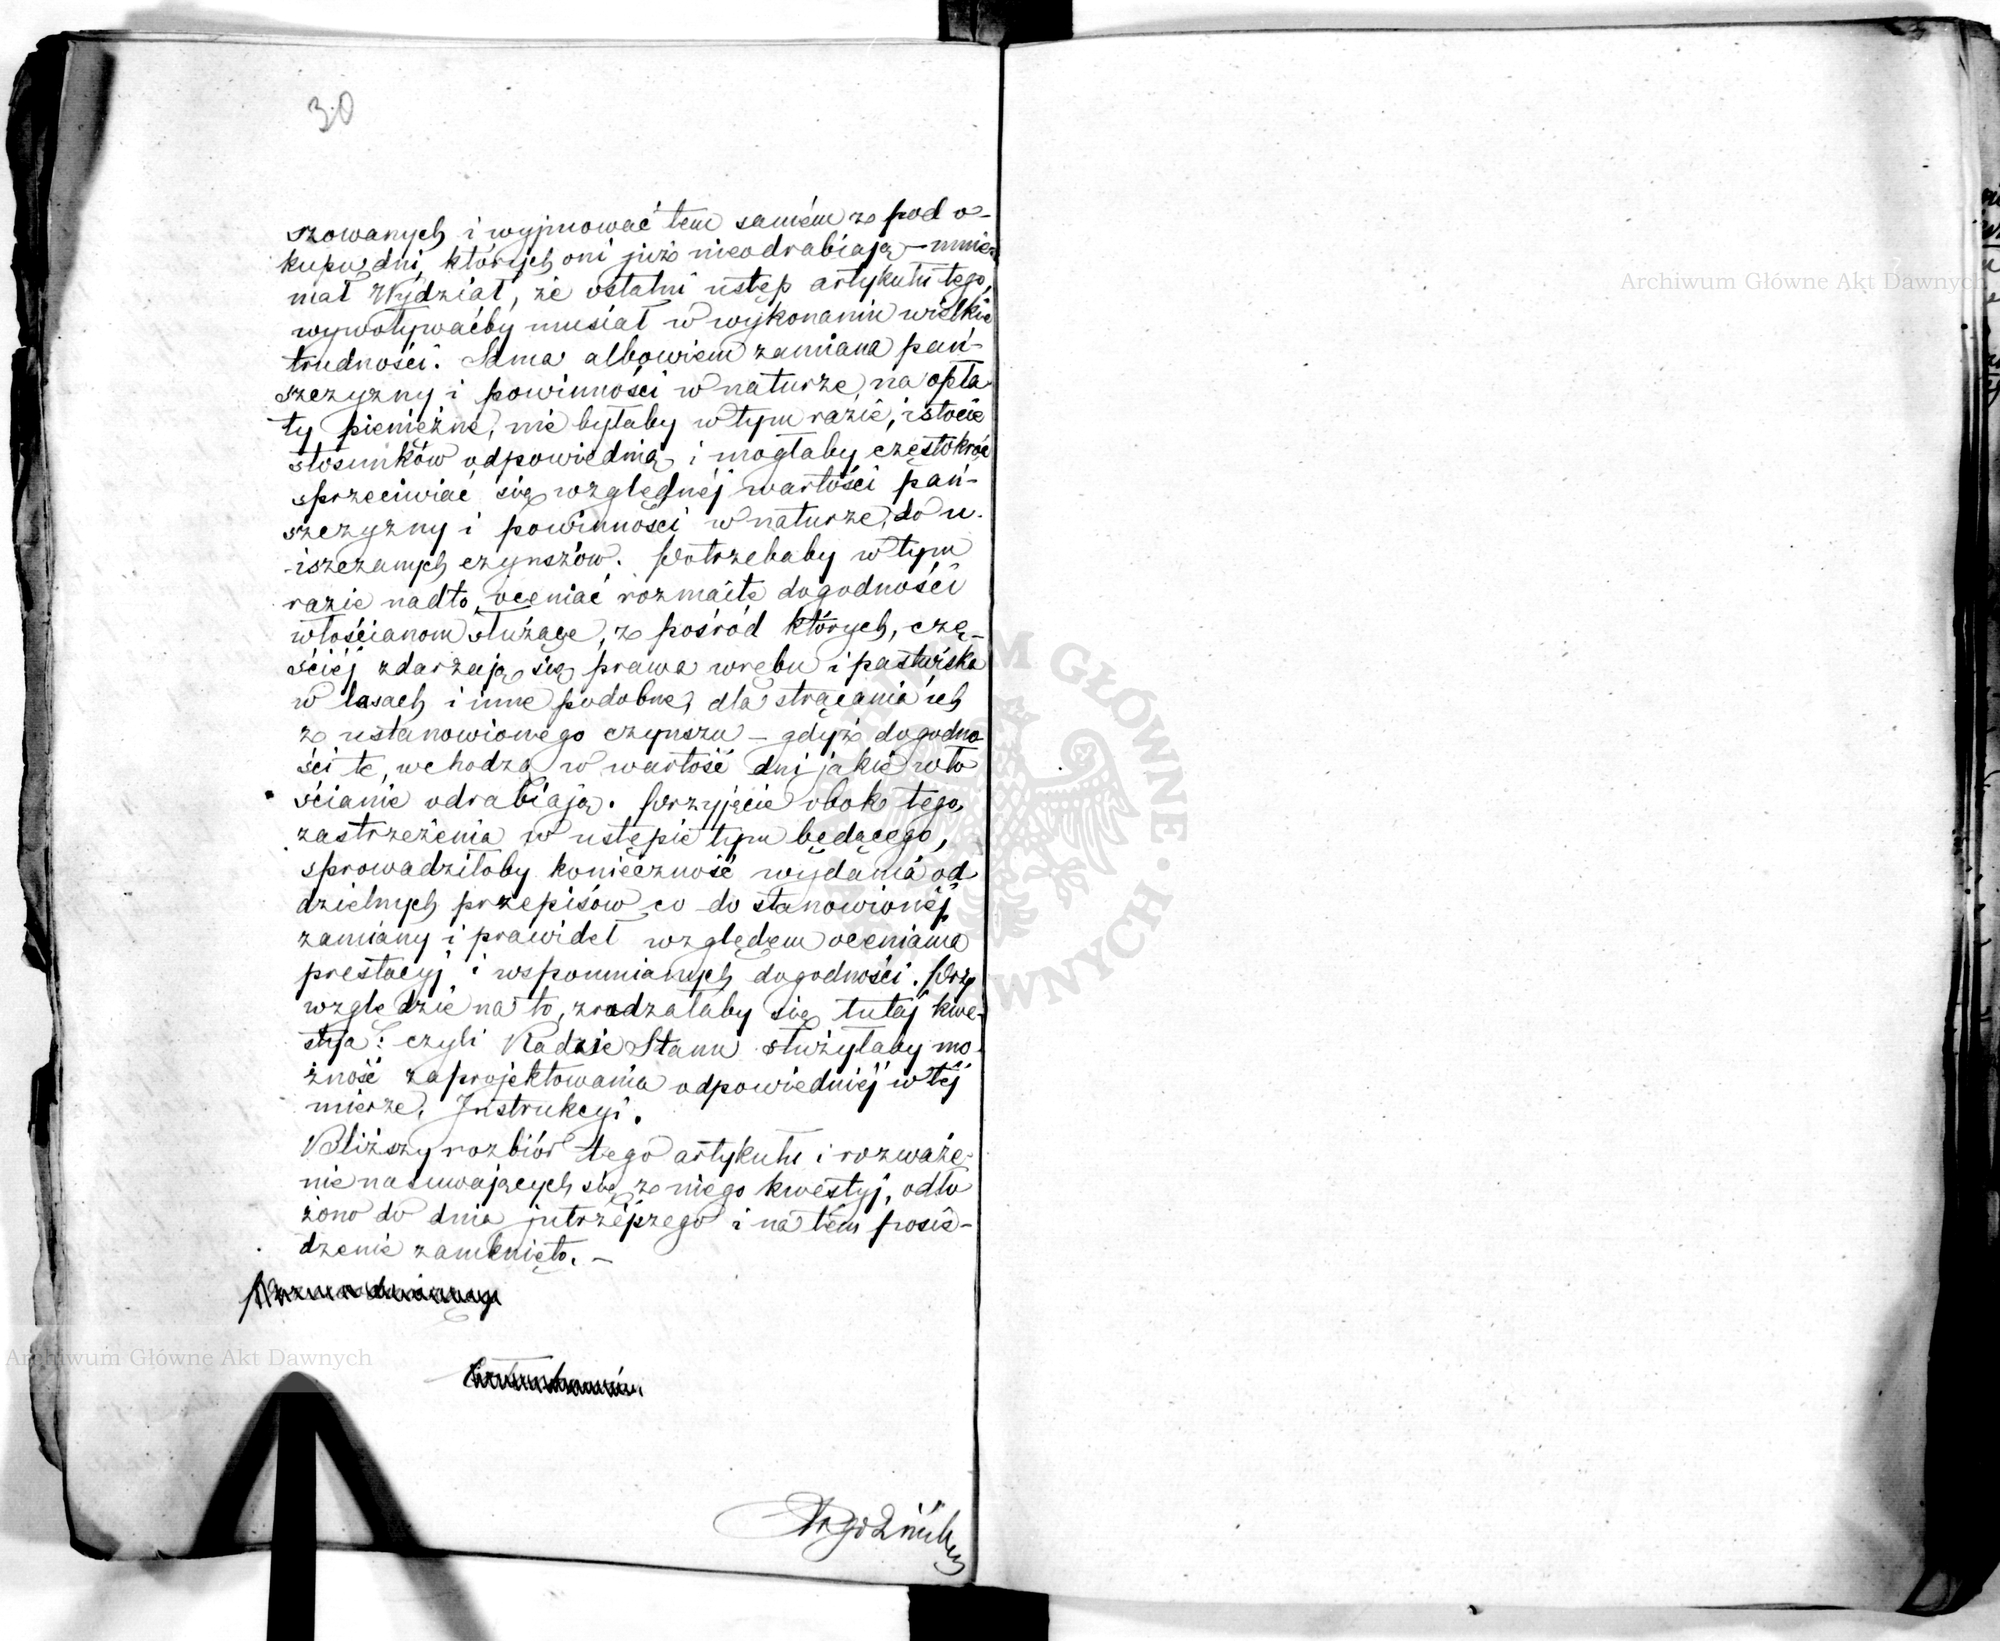 30
szowanych i wyjmować tem samém z pod o-
kupu, dni, których oni już nieodrabiają – mnie-
mał Wydział, że ostatni ustęp artykułu tego,
wywoływaćby musiał w wykonaniu wielkie
trudności. Sama albowiem zamiana pań-
szczyzny i powinności w naturze, na opła-
ty pieniężne, nie byłaby w tym razie, istocie
stosunków odpowiednią i mogłaby częstokroć
sprzeciwiać się względnéj wartości pań-
szczyzny i powinności w naturze, do u-
iszczanych czynszów. Potrzebaby w tym
razie nadto, oceniać rozmaite dogodności
włościanom służące, z pośród których, czę-
ściéj zdarzają się prawa wrębu i pastwiska
w lasach i inne podobne, dla strącania ich
z ustanowionego czynszu – gdyż dogodno
ści te, wchodzą w wartość dni jakie wło
ścianie odrabiają. Przyjęcie obok tego,
zastrzeżenia w ustępie tym będącego,
sprowadziłoby konieczność wydania od
dzielnych przepisów co do stanowionéj
zamiany i prawideł względem oceniania
prestacyj i wspomnianych dogodności. Przy
względzie na to, zradzałaby się tutaj kwe-
stja: czyli Radzie Stanu służyłaby mo-
żność zaprojektowania odpowiedniéj w téj
mierze, Instrukcyi.
Bliższy rozbiór tego artykułu i rozważe-
nie nasuwających się z niego kwestyj, odło
żono do dnia jutrzéjszego i na tém posie-
dzenie zamknięto. –
Archiwum Główne Akt Dawnych
Archiwum Główne Akt Dawnych